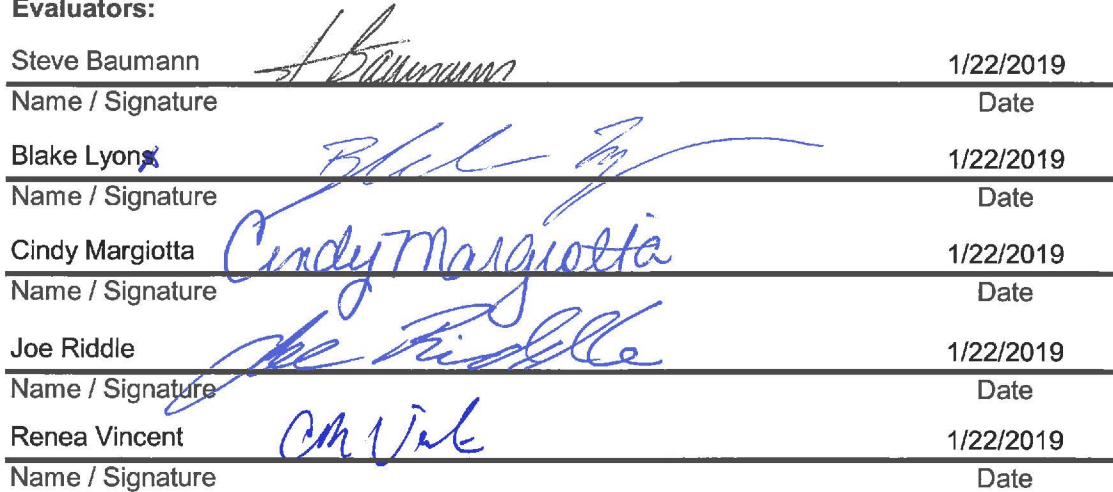 Evaluators:
Steve Baumann St Baumann 1/22/2019
Name / Signature Date
Blake Lyons Blake 1/22/2019
Name / Signature Date
Cindy Margiotta Cindy Margiotta 1/22/2019
Name / Signature Date
Joe Riddle Joe Riddle 1/22/2019
Name / Signature Date
Renea Vincent 1/22/2019
Name / Signature Date